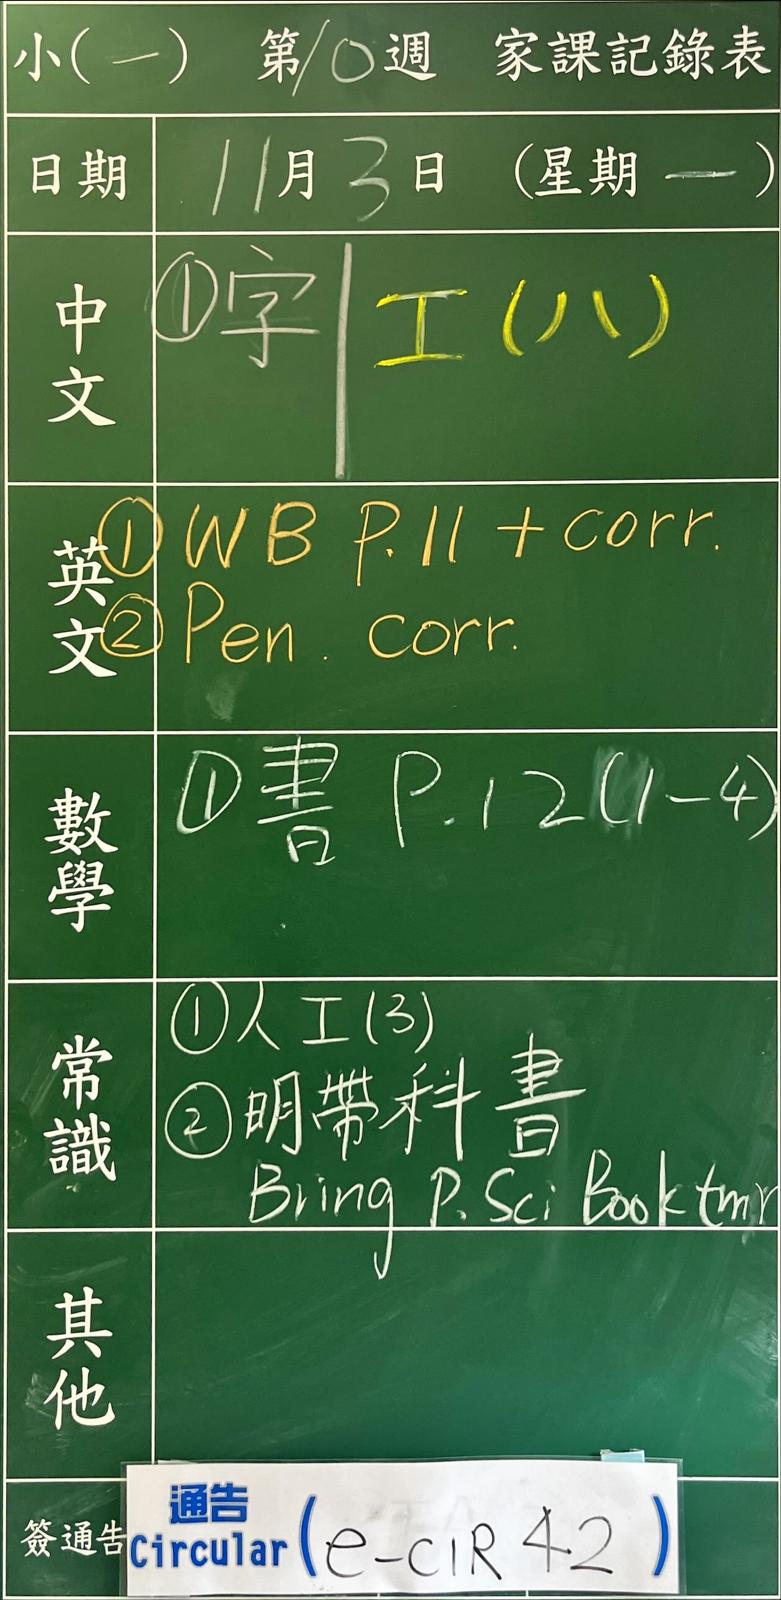 小(一) 第10週 家課記錄表
日期 11月3日 (星期一)
中文 ①字 | 工(八)
英文 ① WB P.11 + corr.
② Pen. corr.
數學 ①書 P.12(1-4)
常識 ①人工(3)
②明帶科書
Bring P. Sci Book tmr
其他
簽通告 通告
Circular (e-CIR 42)